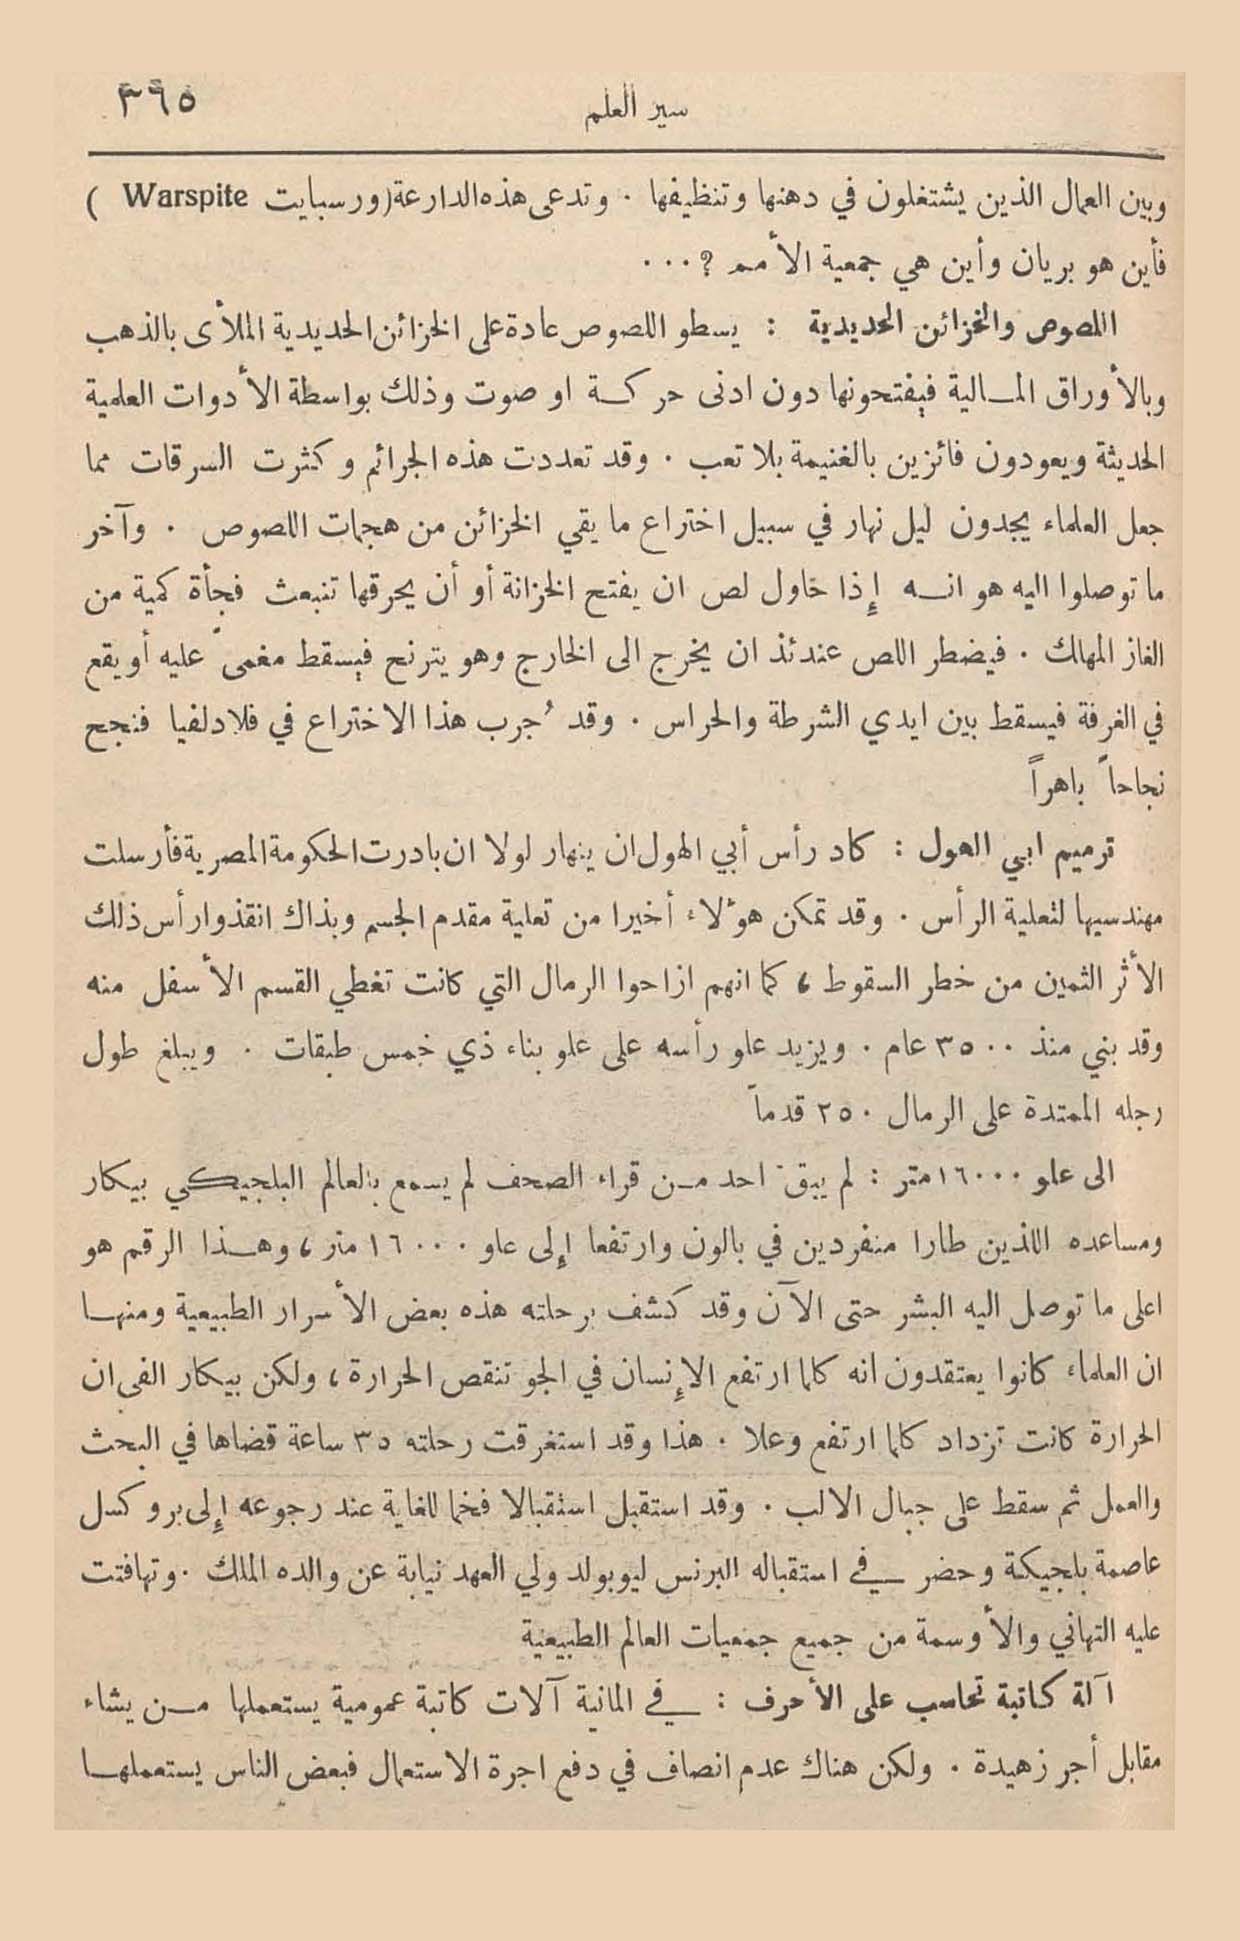 سير العلم ٣٩٥
وبين العمال الذين يشتغلون في دهنها وتنظيفها . وتدعى هذه الدارعة (ورسبايت Warspite )
فأين هو بريان وأين هي جمعية الأمم ؟ ...
اللصوص والخزائن الحديدية : يسطو اللصوص عادة على الخزائن الحديدية الملأى بالذهب
وبالأوراق المالية فيفتحونها دون ادنى حركة او صوت وذلك بواسطة الأدوات العلمية
الحديثة ويعودون فائزين بالغنيمة بلا تعب . وقد تعددت هذه الجرائم وكثرت السرقات مما
جعل العلماء يجدون ليل نهار في سبيل اختراع ما يقي الخزائن من هجمات اللصوص . وآخر
ما توصلوا اليه هو انه إذا حاول لص ان يفتح الخزانة أو أن يحرقها تنبعث فجأة كمية من
الغاز المهالك . فيضطر اللص عندئذ ان يخرج الى الخارج وهو يترنح فيسقط مغمىً عليه أو يقع
في الغرفة فيسقط بين ايدي الشرطة والحراس . وقد ُجرب هذا الاختراع في فلادلفيا فنجح
نجاحاً باهراً
ترميم ابي الهول : كاد رأس أبي الهول ان ينهار لولا ان بادرت الحكومة المصرية فأرسلت
مهندسيها لتعلية الرأس . وقد تمكن هؤلاء أخيرا من تعلية مقدم الجسم وبذاك انقذوا رأس ذلك
الأثر الثمين من خطر السقوط ، كما انهم ازاحوا الرمال التي كانت تغطي القسم الأسفل منه
وقد بني منذ ٣٥٠٠ عام . ويزيد علو رأسه على علو بناء ذي خمس طبقات . ويبلغ طول
رجله الممتدة على الرمال ٢٥٠ قدماً
الى علو ١٦٠٠٠ متر : لم يبق احد من قراء الصحف لم يسمع بالعالم البلجيكي بيكار
ومساعده اللذين طارا منفردين في بالون وارتفعا إلى علو ١٦٠٠٠ متر ، وهذا الرقم هو
اعلى ما توصل اليه البشر حتى الآن وقد كشف برحلته هذه بعض الأسرار الطبيعية ومنها
ان العلماء كانوا يعتقدون انه كلما ارتفع الإنسان في الجو تنقص الحرارة ، ولكن بيكار الفى ان
الحرارة كانت تزداد كلما ارتفع وعلا . هذا وقد استغرقت رحلته ٣٥ ساعة قضاها في البحث
والعمل ثم سقط على جبال الالب . وقد استقبل استقبالا فخما للغاية عند رجوعه إلى بروكسل
عاصمة بلجيكة وحضر في استقباله البرنس ليوبولد ولي العهد نيابة عن والده الملك . وتهافتت
عليه التهاني والأوسمة من جميع جمعيات العالم الطبيعية
آلة كاتبة تحاسب على الأحرف : في المانية آلات كاتبة عمومية يستعملها من يشاء
مقابل أجر زهيدة . ولكن هناك عدم انصاف في دفع اجرة الاستعمال فبعض الناس يستعملها